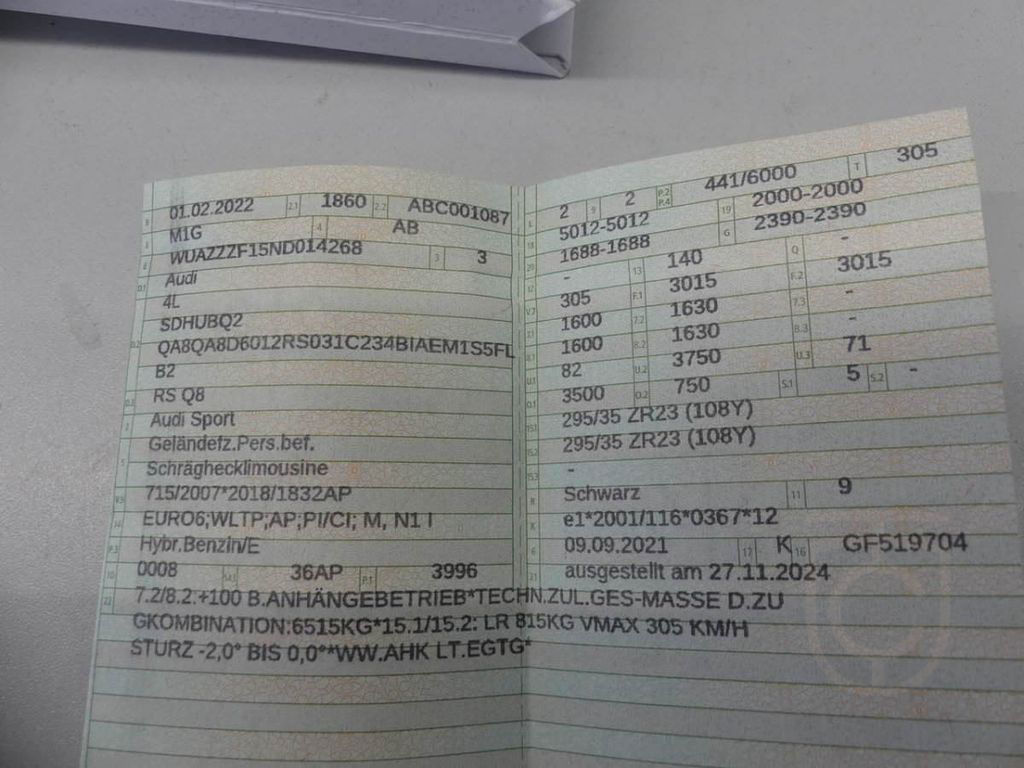 01.02.2022 2.1 1860 2.2 ABC001087
M1G 4 AB
WUAZZZF15ND014268 3 3
Audi
4L
SDHUBQ2
QA8QA8D6012RS031C234BIAEM1S5FL
B2
RS Q8
Audi Sport
Geländefz.Pers.bef.
Schräghecklimousine
715/2007*2018/1832AP
EURO6;WLTP;AP;PI/CI; M, N1 I
Hybr.Benzin/E
0008 36AP P.1 3996
2 9 2 P.2 P.4 441/6000 T 305
5012-5012 19 2000-2000
1688-1688 G 2390-2390
- 13 140 Q -
305 F.1 3015 F.2 3015
1600 7.2 1630 7.3 -
1600 8.2 1630 8.3 -
82 U.2 3750 U.3 71
3500 O.2 750 S.1 5 S.2 -
295/35 ZR23 (108Y)
295/35 ZR23 (108Y)
-
Schwarz 11 9
e1*2001/116*0367*12
09.09.2021 17 K 16 GF519704
21 ausgestellt am 27.11.2024
22 7.2/8.2:+100 B.ANHÄNGEBETRIEB*TECHN.ZUL.GES-MASSE D.ZU
GKOMBINATION:6515KG*15.1/15.2: LR 815KG VMAX 305 KM/H
STURZ -2,0° BIS 0,0°*WW.AHK LT.EGTG*